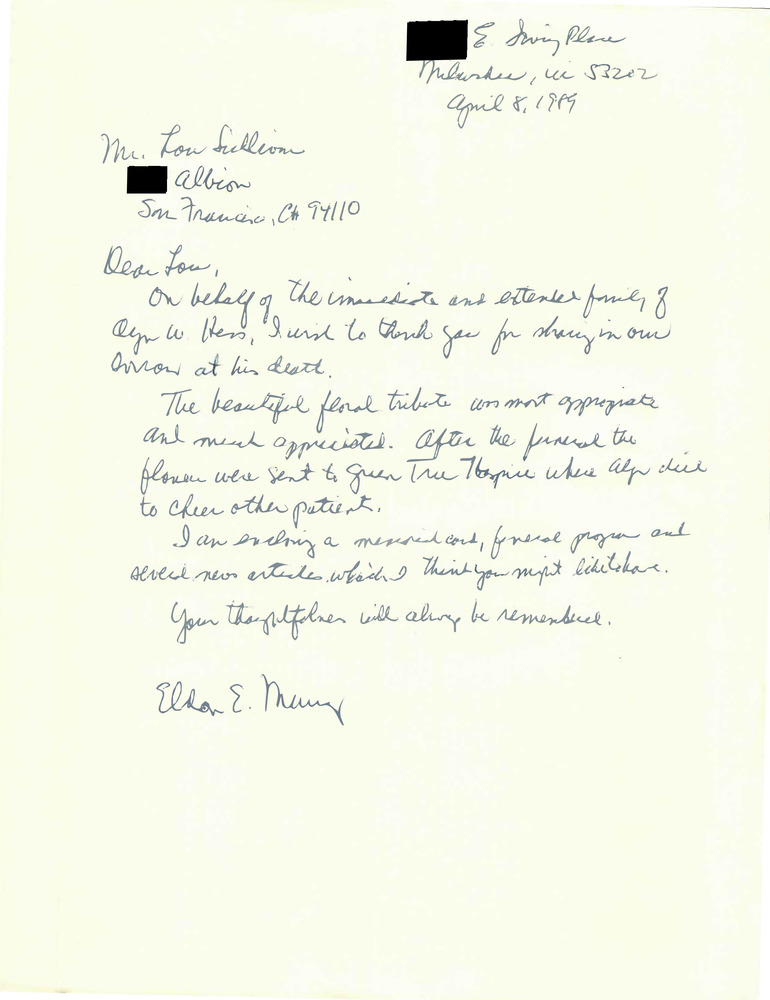 E. Irving Place
Milwaukee, WI 53202
April 8, 1989
Mr. Lou Sullivan
Albion
San Francisco, CA 94110
Dear Lou,
On behalf of the immediate and extended family of
Alyn W. Hess, I wish to thank you for sharing in our
sorrow at his death.
The beautiful floral tribute was most appropriate
and much appreciated. After the funeral the
flowers were sent to Green Tree Hospice where Alyn died
to cheer other patients.
I am enclosing a memorial card, funeral program and
several news articles which I think you might like to have.
Your thoughtfulness will always be remembered.
Eldon E. Murray